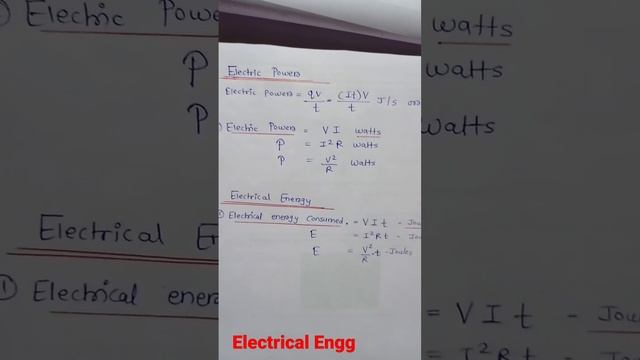 Electric Powers
Electric Powers = qV/t = (It)V/t J/s or
Electric Powers = VI watts
P = I²R watts
P = V²/R watts
Electrical Energy
Electrical energy consumed. = VIt - Jou
E = I²Rt - Jo
E = V²/R .t - Joules
Electrical Engg
Electric Powers
watts
P watts
P watts
Electrical En
① Electrical energ
= VIt - Jou
= I²Rt - Jo